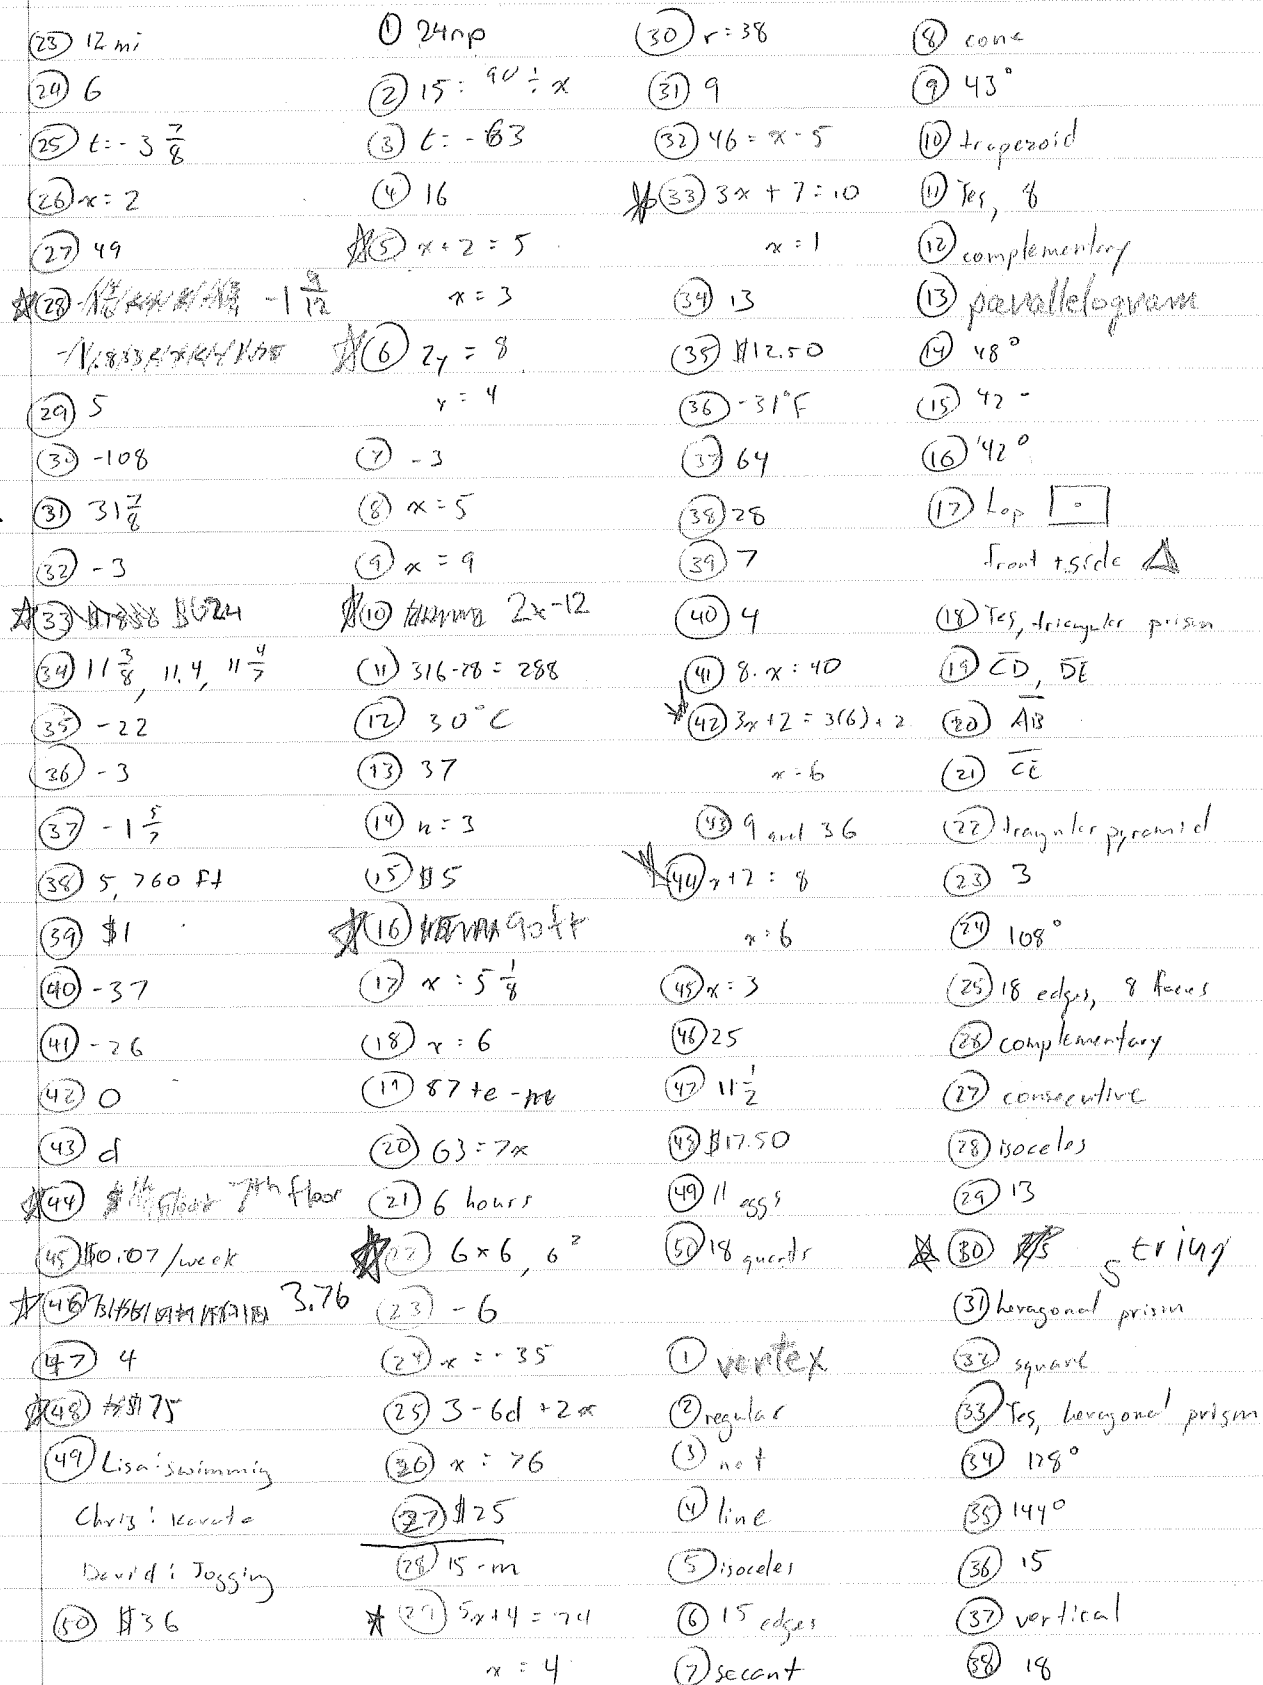 (23) 12 mi
(24) 6
(25) t = -3 7/8
(26) x = 2
(27) 49
(28) -1 9/12
(29) 5
(30) -108
(31) 31 7/8
(32) -3
(33) $624
(34) 11 3/8, 11.4, 11 4/7
(35) -22
(36) -3
(37) -1 5/7
(38) 5,760 ft
(39) $1
(40) -37
(41) -26
(42) 0
(43) d
(44) 7th floor
(45) $0.07/week
(46) 3.76
(47) 4
(48) $75
(49) Lisa: swimming
Chris: Karate
David: Jogging
(50) $36
(1) 24np
(2) 15 = 90 ÷ x
(3) t = -63
(4) 16
(5) x + 2 = 5
x = 3
(6) 2y = 8
y = 4
(7) -3
(8) x = 5
(9) x = 9
(10) 2x-12
(11) 316-28 = 288
(12) 30°C
(13) 37
(14) n = 3
(15) $5
(16) 90 ft
(17) x = 5 1/8
(18) x = 6
(19) 87 + e - m
(20) 63 = 7x
(21) 6 hours
(22) 6×6, 6²
(23) -6
(24) x = -35
(25) 3 - 6d + 2x
(26) x = 76
(27) $25
(28) 15 - m
(29) 5x + 4 = 24
x = 4
(30) r = 38
(31) 9
(32) 46 = x - 5
(33) 3x + 7 = 10
x = 1
(34) 13
(35) $12.50
(36) -31°F
(37) 64
(38) 28
(39) 7
(40) 4
(41) 8 · x = 40
(42) 3x + 2 = 3(6) + 2
x = 6
(43) 9 and 36
(44) x + 2 = 8
x = 6
(45) x = 3
(46) 25
(47) 11 1/2
(48) $17.50
(49) 11 eggs
(50) 18 quarts
(1) vertex
(2) regular
(3) not
(4) line
(5) isoceles
(6) 15 edges
(7) secant
(8) cone
(9) 43°
(10) trapezoid
(11) Yes, 8
(12) complementary
(13) parallelogram
(14) 48°
(15) 42°
(16) 42°
(17) top
front + side
(18) Yes, triangular prism
(19) CD, DE
(20) AB
(21) CE
(22) triangular pyramid
(23) 3
(24) 108°
(25) 18 edges, 8 faces
(26) complementary
(27) consecutive
(28) isoceles
(29) 13
(30) string
(31) hexagonal prism
(32) square
(33) Yes, hexagonal prism
(34) 128°
(35) 144°
(36) 15
(37) vertical
(38) 18